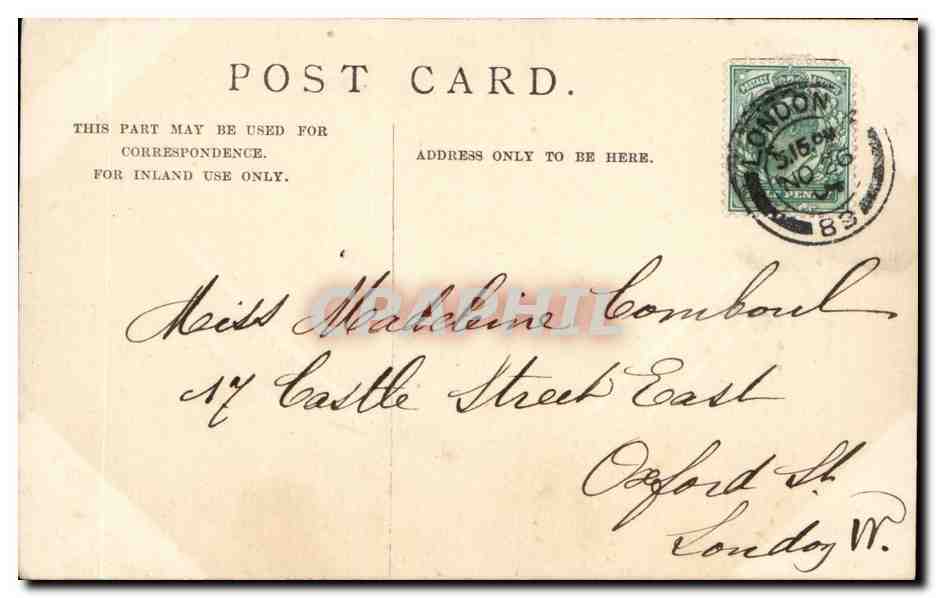 POST CARD.
THIS PART MAY BE USED FOR
CORRESPONDENCE.
FOR INLAND USE ONLY.
ADDRESS ONLY TO BE HERE.
LONDON
5.15 PM
NO
83
POSTAGE
PENNY
GRAPHIL
Miss Madeleine Comboul
17 Castle Street East
Oxford St
London W.